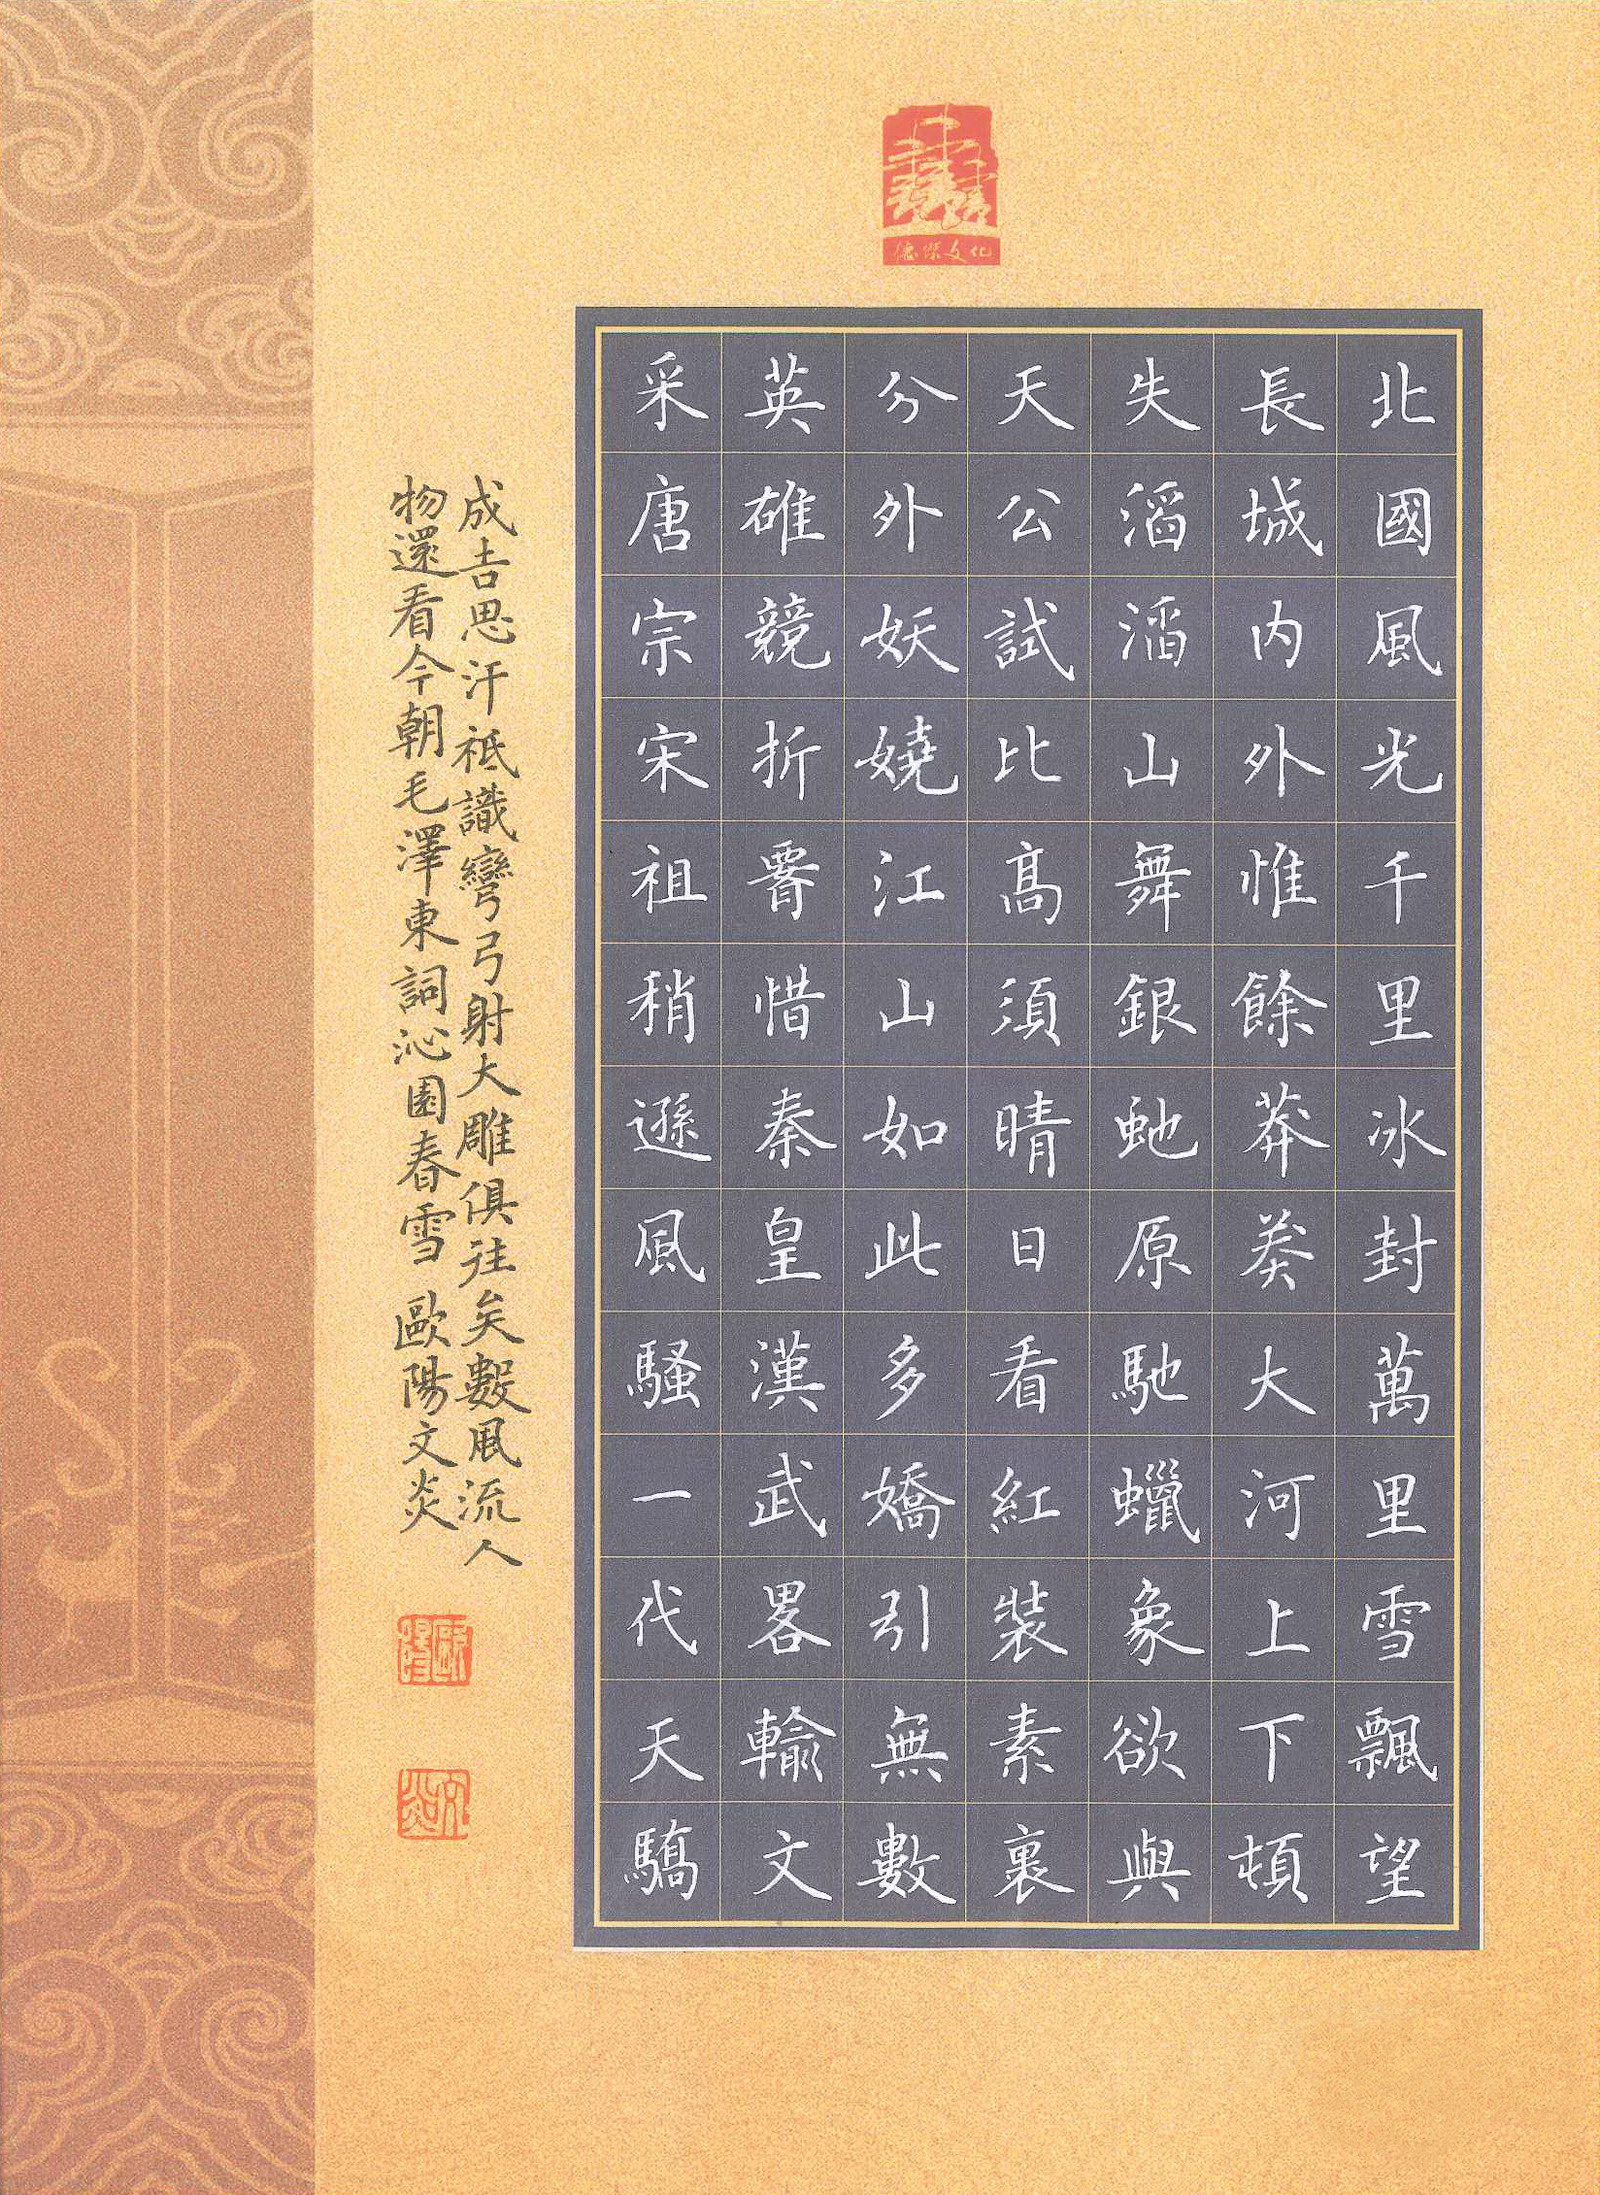 德傑文化
北國風光千里冰封萬里雪飄望
長城内外惟餘莽莽大河上下頓
失滔滔山舞銀虵原馳蠟象欲與
天公試比髙須晴日看紅裝素裹
分外妖嬈江山如此多嬌引無數
英雄競折腰惜秦皇漢武畧輸文
采唐宗宋祖稍遜風騷一代天驕
成吉思汗祗識彎弓射大雕俱往矣數風流人
物還看今朝毛澤東詞沁園春雪 歐陽文炎
歐陽
文炎